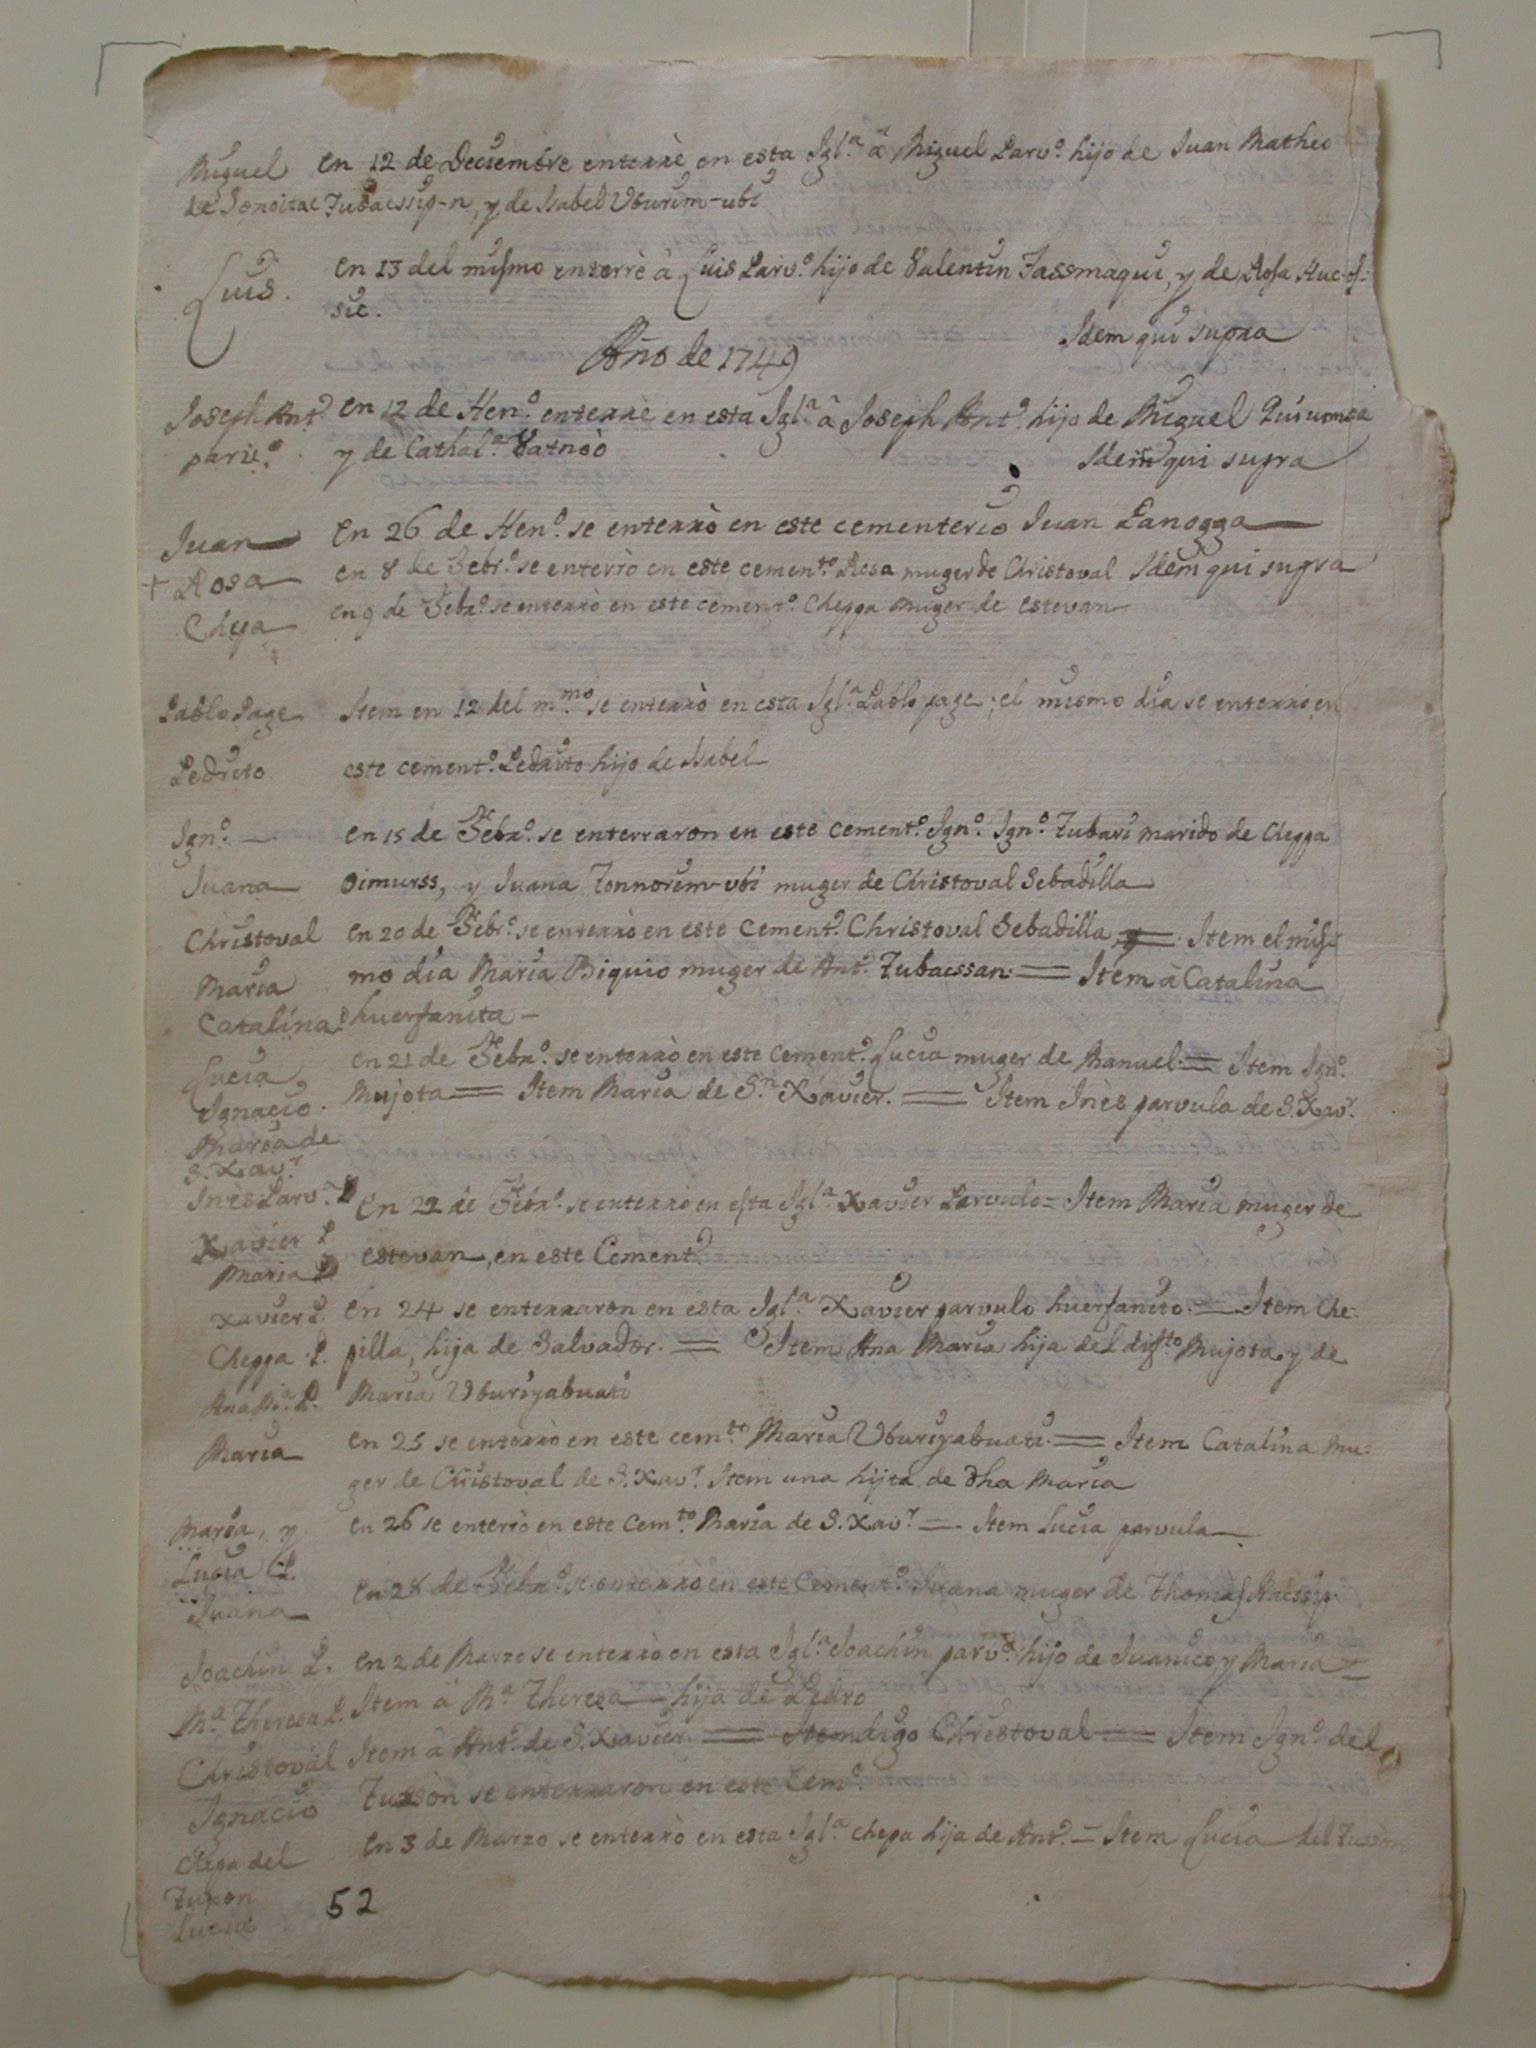 Miguel en 12 de Deciembre enterrè en esta Igl.ª â Miguel Parv.º hijo de Juan Matheo
de Sonoitac Tubacssip-n, y de Isabel Uburim-ubi
Luis. en 13 del mismo enterrè â Luis Parv.º hijo de Valentin Tassmaqui, y de Rosa Huc-
sic.
Idem qui supra
Año de 1749
Joseph Ant.º en 12 de Hen.º enterrè en esta Igl.ª â Joseph Ant.º hijo de Miguel
parv.º y de Cathal.ª Vatnoò Idem qui supra
Juan en 26 de Hen.º se enterrò en este cementerio Juan Panogga
+ Rosa en 8 de Febr.º se enterrò en este cement.to Rosa muger de Christoval Idem qui supra
Chepa en 9 de Febr.º se enterrò en este cement.º Cheppa muger de estevan
Pablo Page Item en 12 del m.mo se enterrò en esta Igl.ª Pablo page; el mismo dia se enterrò en
Pedrito este cement.º Pedrito hijo de Isabel
Ign.º en 15 de Febr.º se enterraron en este cement.º Ign.º Ign.º Tubari marido de Cheppa
Juana Oimurss, y Juana Tonnorim-ubi muger de Christoval Sebadilla
Christoval en 20 de Febr.º se enterrò en este cement.º Christoval Sebadilla = Item el mis-
Maria mo dia Maria Biquio muger de Ant.º Tubacssan = Item à Catalina
Catalina P huerfanita -
Lucia en 21 de Febr.º se enterrò en este cement.º Lucia muger de Manuel = Item Ign.º
Ignacio. Mujota = Item Maria de S.n Xavier. = Item Inès parvula de S. Xav.r
Maria de
S. Xav.r
Inès Parv.ª En 22 de Febr.º se enterrò en esta Igl.ª Xavier Parvulo = Item Maria muger de
Xavier P estevan, en este Cement.º
Maria
Xavier P. en 24 se enterraron en esta Igl.ª Xavier parvulo huerfanito. = Item Che-
Cheppa P. pilla, hija de Salvador. = Item Ana Maria hija del dif.to Mujota, y de
Ana M.ª P. Maria Uburiyabuati
Maria en 25 se enterrò en este cem.to Maria Uburiyabuati = Item Catalina mu-
ger de Christoval de S. Xav.r Item una hijita de dha Maria
Maria, y en 26 se enterrò en este Cem.to Maria de S. Xav.r = Item Lucia parvula
Lucia P.
Juana en 28 de Febr.º se enterrò en este Cement.º Juana muger de Thomas
Joachin P. en 2 de Marzo se enterrò en esta Igl.ª Joachin parv.º hijo de Juanico y Maria =
M.ª Theresa P. Item â M.ª Theresa hija de Pedro
Christoval Item à Ant.º de S. Xavier. = Item digo Christoval = Item Ign.º del
Ignacio Tuxson se enterraron en este Cem.º
Chepa del en 3 de Marzo se enterrò en esta Igl.ª Chepa hija de Ant.º = Item Lucia del Tusson
Tuxon
Lucia
52